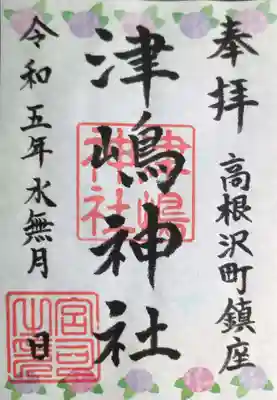 奉拝
高根沢町鎮座
津嶋神社
津嶋神社
令和五年水無月
日